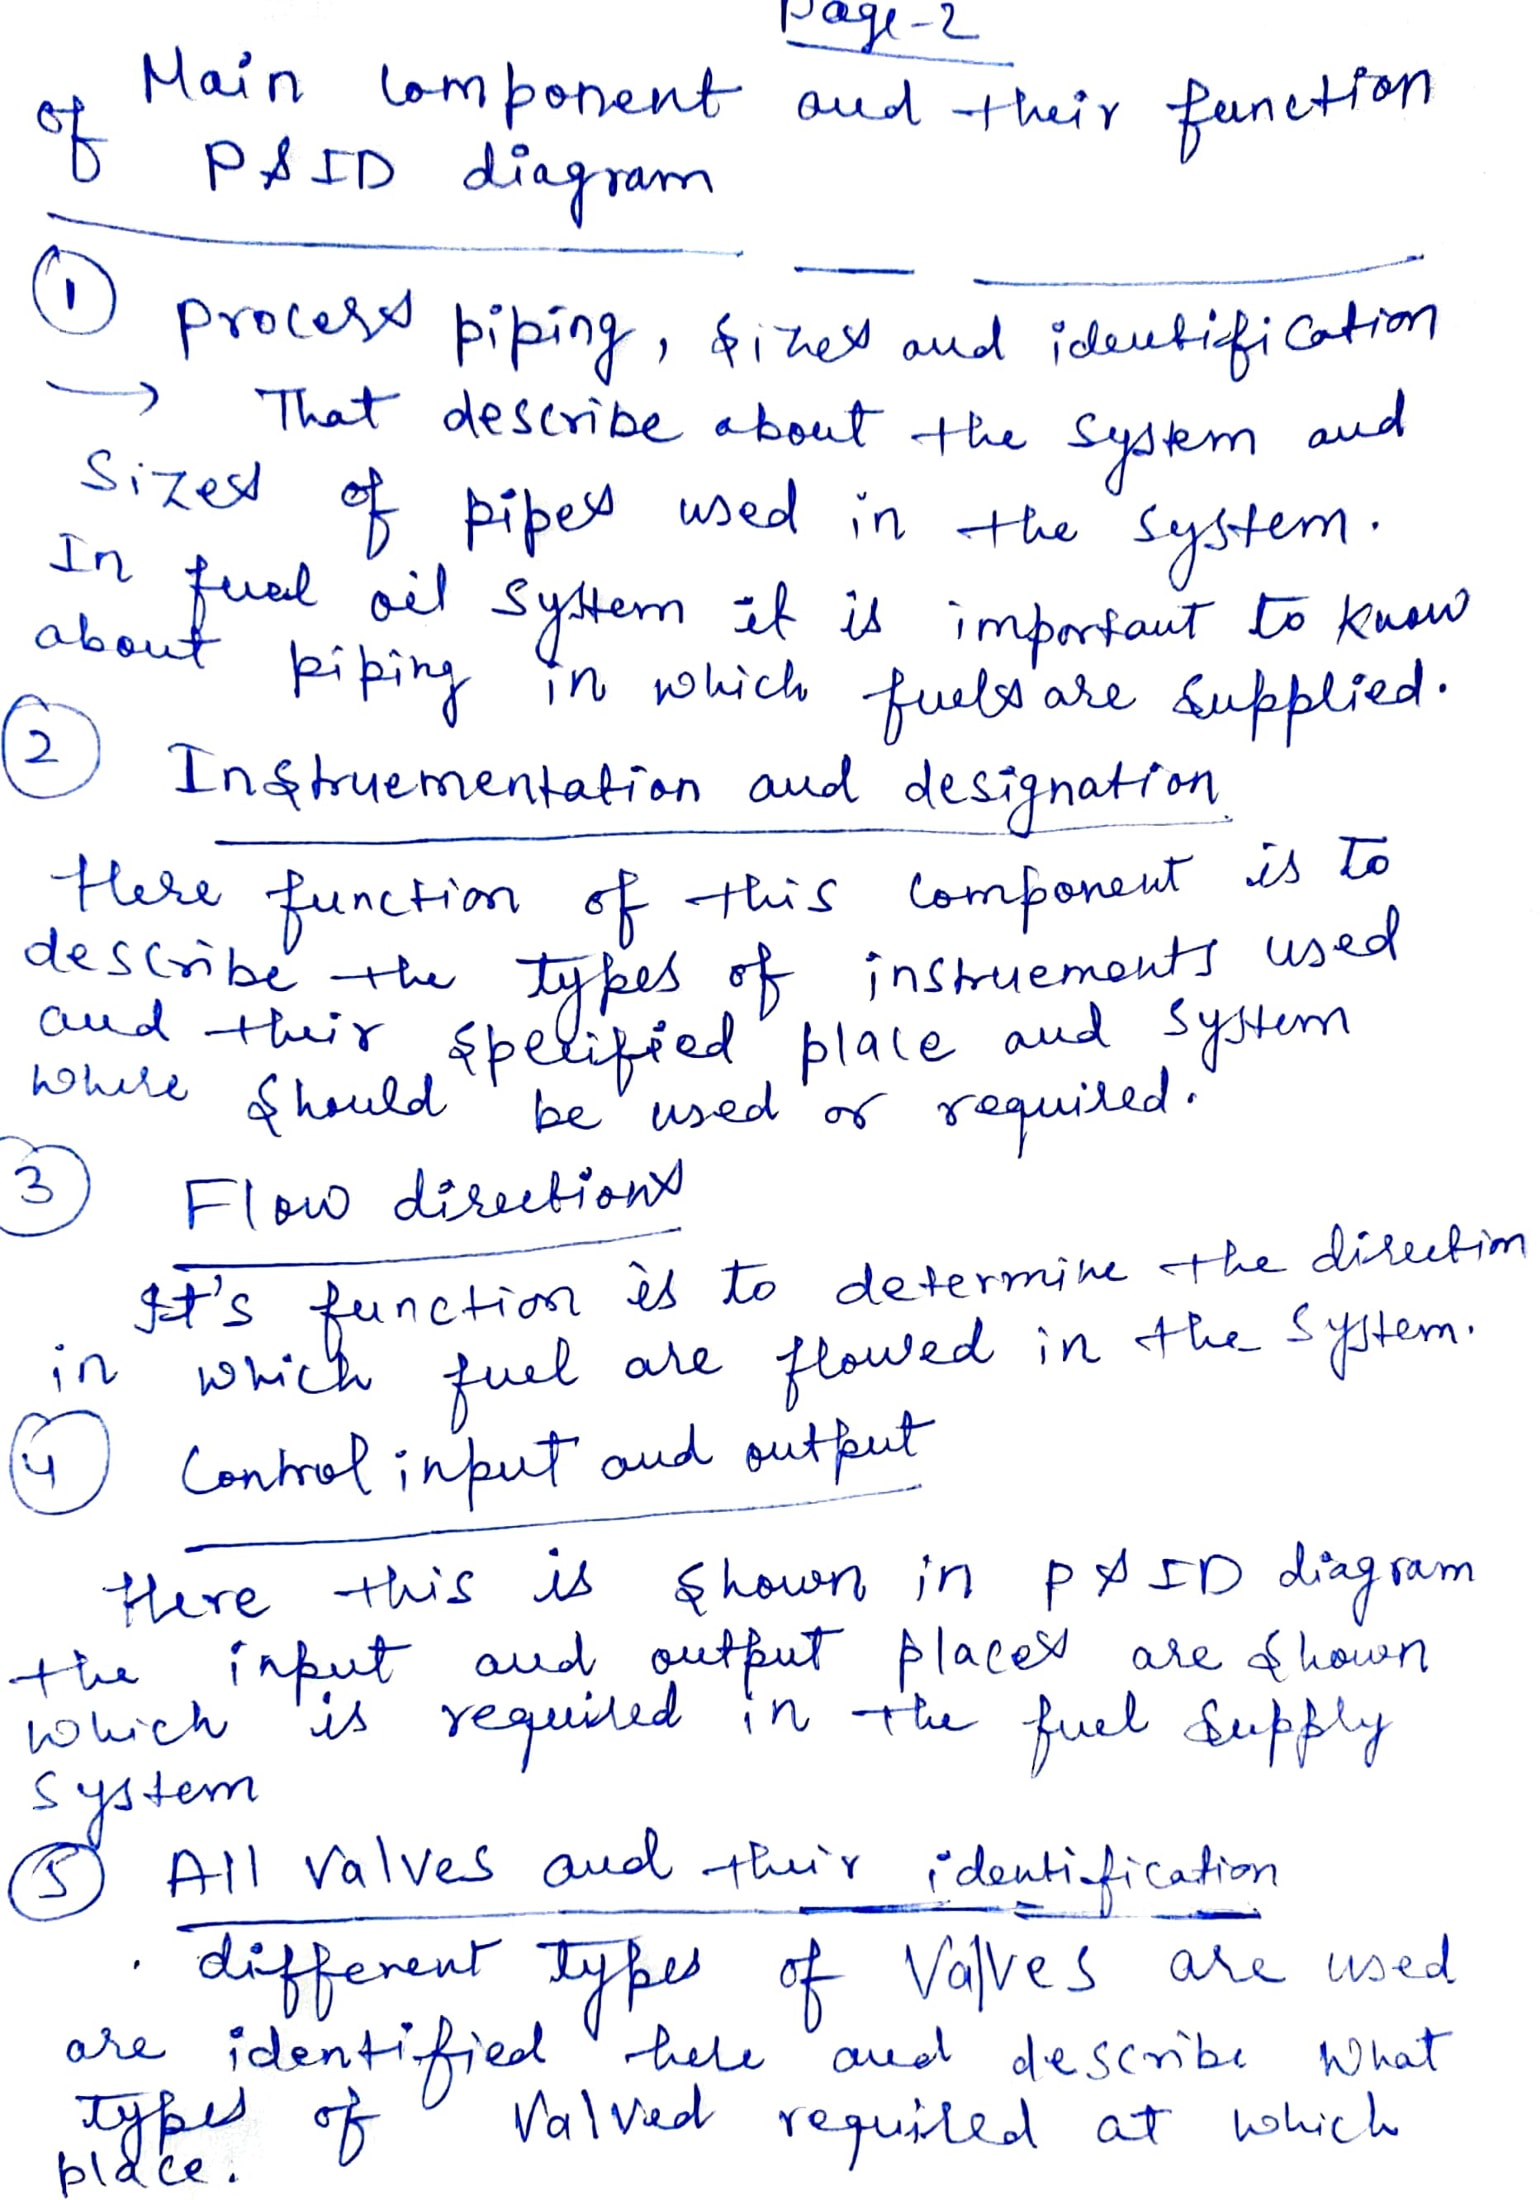 Page-2
Main component and their function
of P&ID diagram
1 process piping, sizes and identification
→ That describe about the system and
sizes of pipes used in the system.
In fueal oil system it is important to know
about piping in which fuels are supplied.
2 Instruementation and designation
Here function of this component is to
describe the types of instruements used
and their specified place and system
where should be used or required.
3 Flow directions
It's function is to determine the direction
in which fuel are flowed in the system.
4 Control input and output
Here this is shown in P&ID diagram
the input and output places are shown
which is required in the fuel supply
system
5 All valves and their identification
. different types of valves are used
are identified here and describe what
types of valved required at which
place.